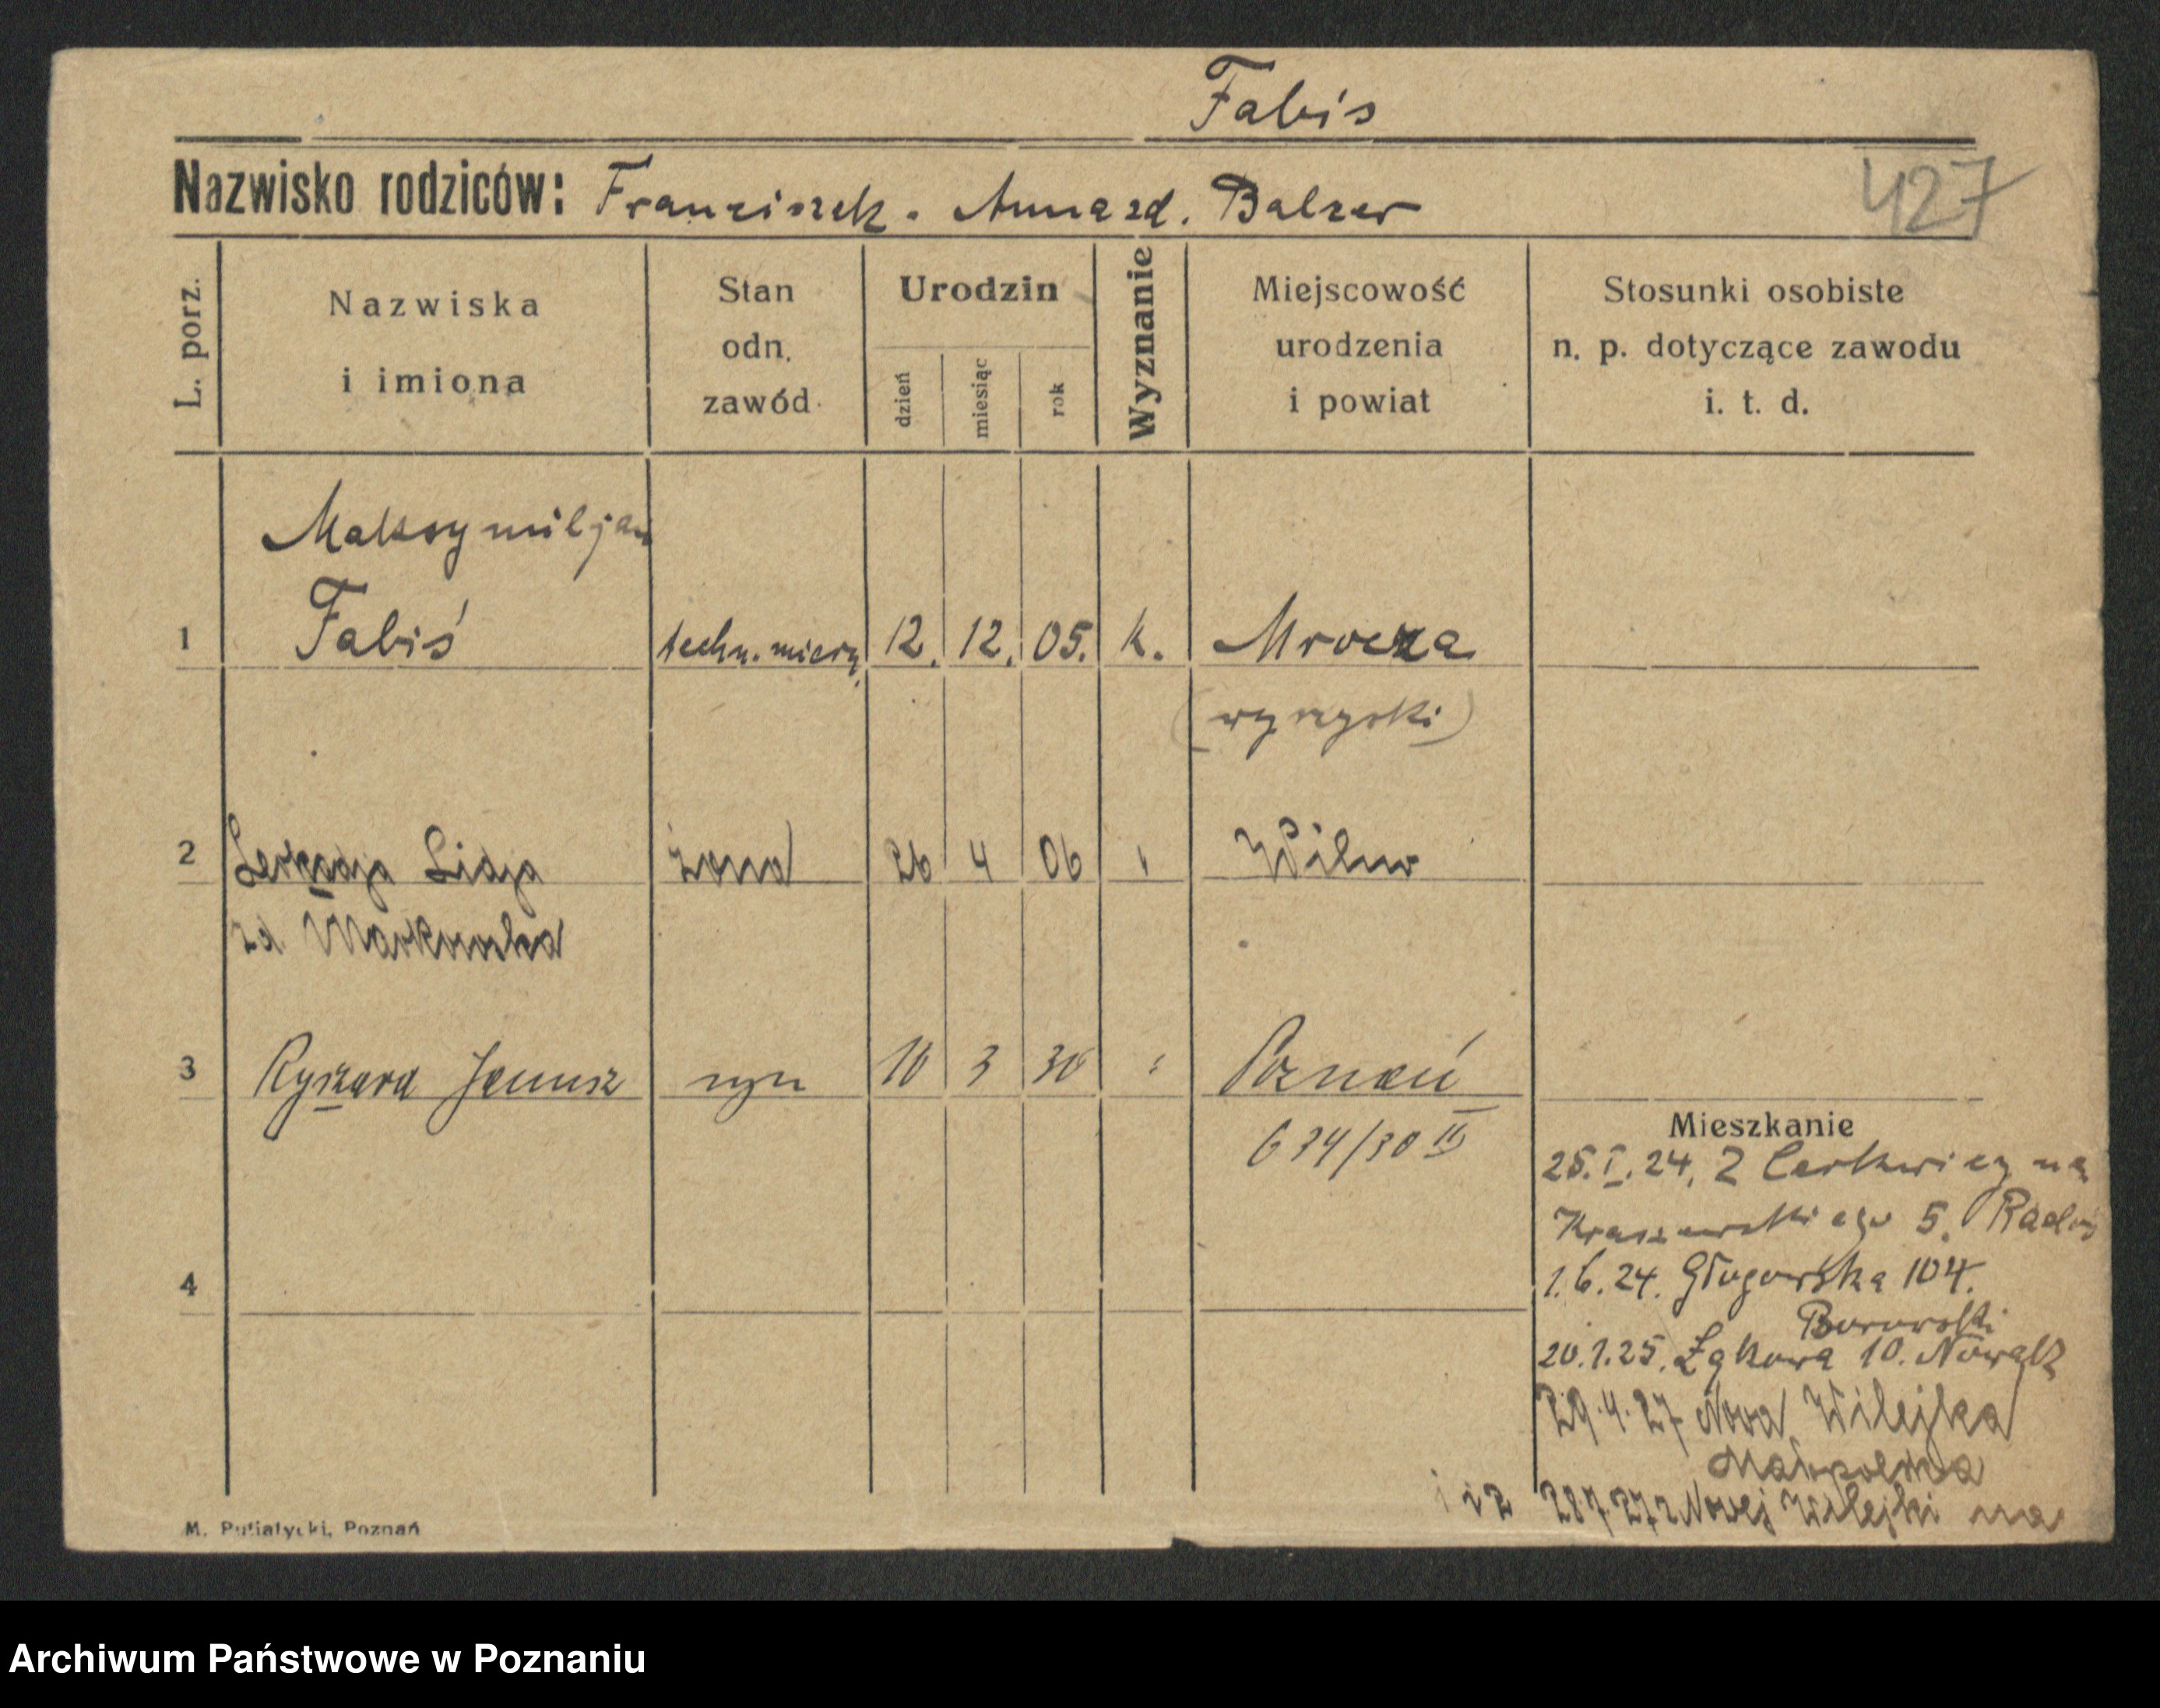 Fabiś
Nazwisko rodziców: Franciszek. Anna zd. Balzer
427
L. porz.
Nazwiska
i imiona
Stan
odn.
zawód
Urodzin
dzień
miesiąc
rok
Wyznanie
Miejscowość
urodzenia
i powiat
Stosunki osobiste
n. p. dotyczące zawodu
i. t. d.
Maksymiljan
1 Fabiś techn. miern. 12. 12. 05. k. Mrocza
(wyrzyski)
2 Lidja żona 26 4 06 " Wilno
zd. Markowska
3 Ryszard Janusz syn 10 3 30 " Poznań
634/30 II
Mieszkanie
25.I.24. Z Cerkwicy na
Kraszewskiego 5.
4 1.6.24. Głogowska 104.
Borowski
20.1.25. Łąkowa 10. Nowak
29.4.27 Nowa Wilejka
28.7.27 z Nowej Wilejki na
M. Putiatycki, Poznań
Archiwum Państwowe w Poznaniu